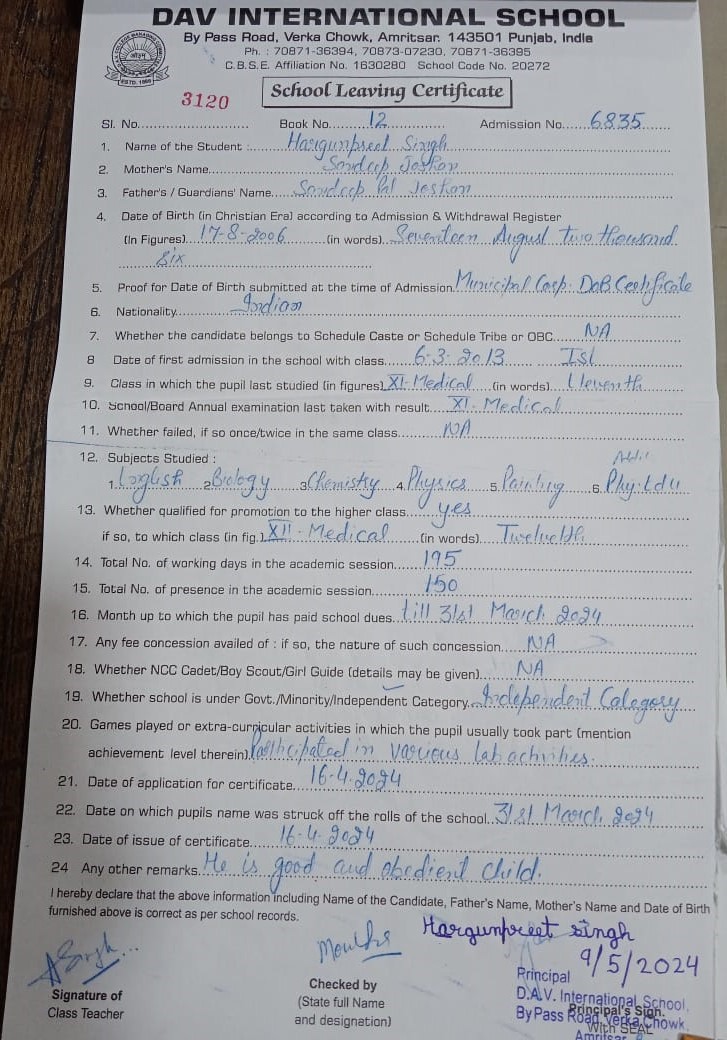 DAV INTERNATIONAL SCHOOL
By Pass Road, Verka Chowk, Amritsar. 143501 Punjab, India
Ph. : 70871-36394, 70873-07230, 70871-36395
C.B.S.E. Affiliation No. 1630280 School Code No. 20272
School Leaving Certificate
3120
Sl. No. Book No. 12 Admission No. 6835
1. Name of the Student : Hargunpreet Singh
2. Mother's Name Sandeep
3. Father's / Guardians' Name
4. Date of Birth (in Christian Era) according to Admission & Withdrawal Register
(In Figures) 17-8-2006 (in words) Seventeen August two thousand
Six
5. Proof for Date of Birth submitted at the time of Admission. Municipal Corp. DOB Certificate
6. Nationality Indian
7. Whether the candidate belongs to Schedule Caste or Schedule Tribe or OBC NA
8 Date of first admission in the school with class 6-3-2013 Ist
9. Class in which the pupil last studied (in figures) XI-Medical (in words) Eleventh
10. School/Board Annual examination last taken with result XI-Medical
11. Whether failed, if so once/twice in the same class NA
12. Subjects Studied :
1. English 2. Biology 3. Chemistry 4. Physics 5. Painting 6. Phy. Edu
13. Whether qualified for promotion to the higher class yes
if so, to which class (in fig.) XII-Medical (in words) Twelveth
14. Total No. of working days in the academic session 195
15. Total No. of presence in the academic session 150
16. Month up to which the pupil has paid school dues till 31st March 2024
17. Any fee concession availed of : if so, the nature of such concession NA
18. Whether NCC Cadet/Boy Scout/Girl Guide (details may be given) NA
19. Whether school is under Govt./Minority/Independent Category Independent Category
20. Games played or extra-curricular activities in which the pupil usually took part (mention
achievement level therein) Participated in various lab activities.
21. Date of application for certificate 16-4-2024
22. Date on which pupils name was struck off the rolls of the school 31st March 2024
23. Date of issue of certificate 16-4-2024
24 Any other remarks He is good and obedient child.
I hereby declare that the above information including Name of the Candidate, Father's Name, Mother's Name and Date of Birth
furnished above is correct as per school records.
Hargunpreet singh
9/5/2024
Signature of
Class Teacher
Checked by
(State full Name
and designation)
Principal
D.A.V. International School,
Principal's Sign.
By Pass Road, Verka Chowk,
With SEAL
Amritsar